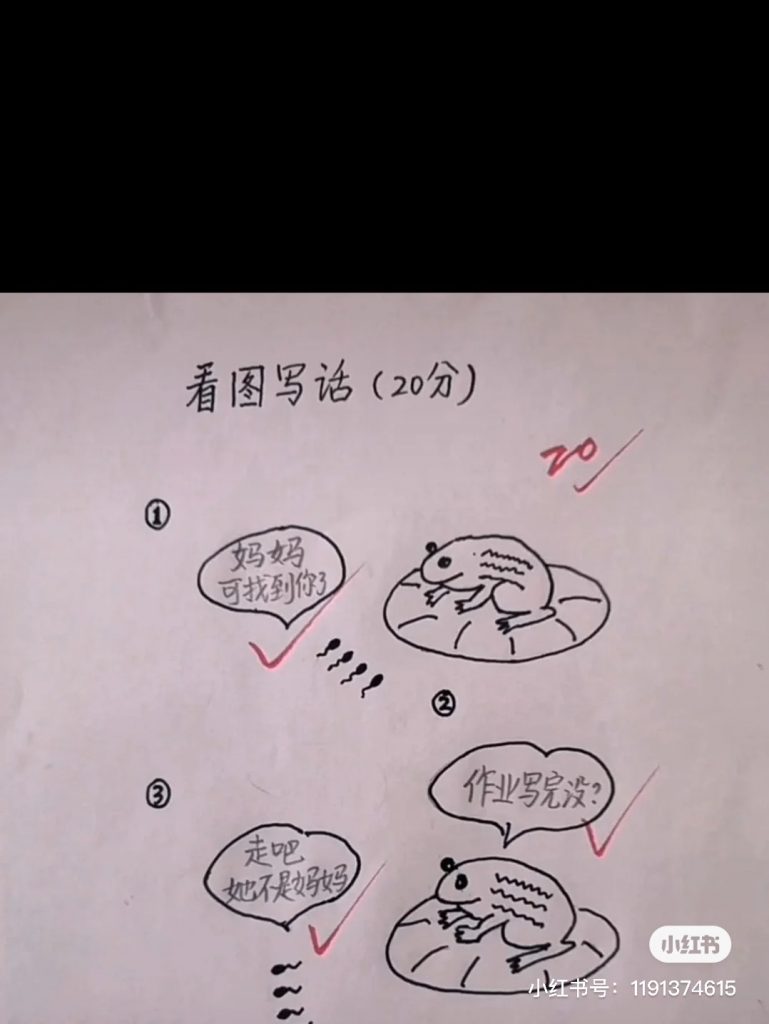 看图写话(20分)
20
①
妈妈
可找到你了
②
作业写完没?
③
走吧
她不是妈妈
小红书
小红书号:1191374615